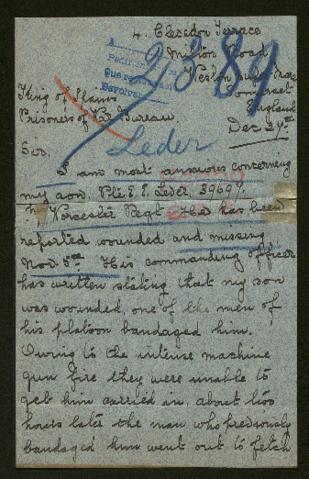 4, Clevedon Terrace
Milton Road
Weston super Mare
Somerset
England
Dec 24th
A
2389
King of Spain's
Prisoners of War Bureau.
Sir,
Leder
I am most anxious concerning
my son, Pte E. E. Leder, 39697
Worcester Regt. He has been
reported wounded and missing
Nov 5th. His commanding officer
has written stating that my son
was wounded, one of the men of
his platoon bandaged him.
Owing to the intense machine
gun fire they were unable to
get him carried in, about two
hours later the man who previously
bandaged him went out to fetch